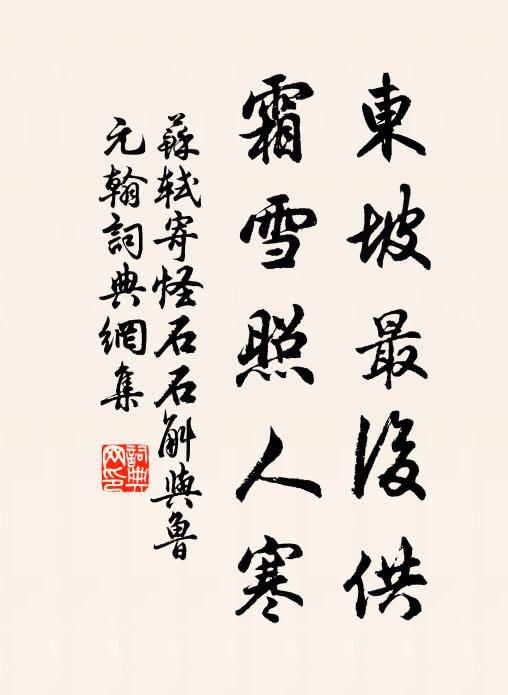 東坡最後供
霜雪照人寒
蘇軾寄怪石石斛與魯
元翰詞典網集
詞典网印